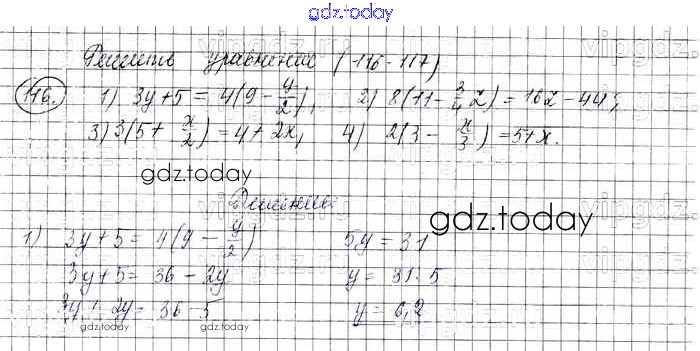 gdz.today
Решить уравнения (116-117)
116. 1) 3y+5 = 4(9 - y/2); 2) 8(11 - 3/4 z) = 16z - 44;
3) 3(5 + x/2) = 4 + 2x; 4) 2(3 - x/3) = 5+x.
gdz.today
Решение:
gdz.today
1) 3y + 5 = 4(9 - y/2) 5y = 31
3y + 5 = 36 - 2y y = 31 : 5
3y + 2y = 36 - 5 y = 6,2
gdz.today
vipgdz.ru